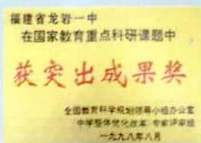 福建省龙岩一中
在国家教育重点科研课题中
获突出成果奖
全国教育科学规划领导小组办公室
中学整体优化改革专家评审组
一九九八年八月